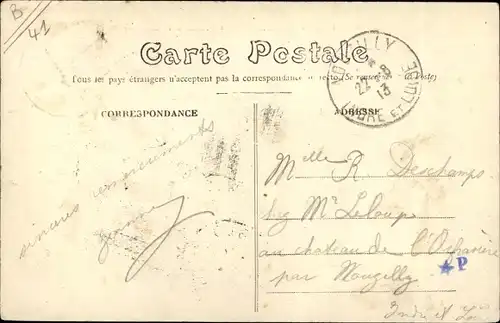 B
41
Carte Postale
Tous les pays étrangers n'acceptent pas la correspondance au recto (Se renseigner à la Poste)
NOUZILLY
22 -8
13
INDRE ET LOIRE
CORRESPONDANCE
ADRESSE
sincères remerciements
Melle R. Deschamps
chez Mr Leloup
au chateau de l'Orfrasière
par Nouzilly
P
Indre et Loire